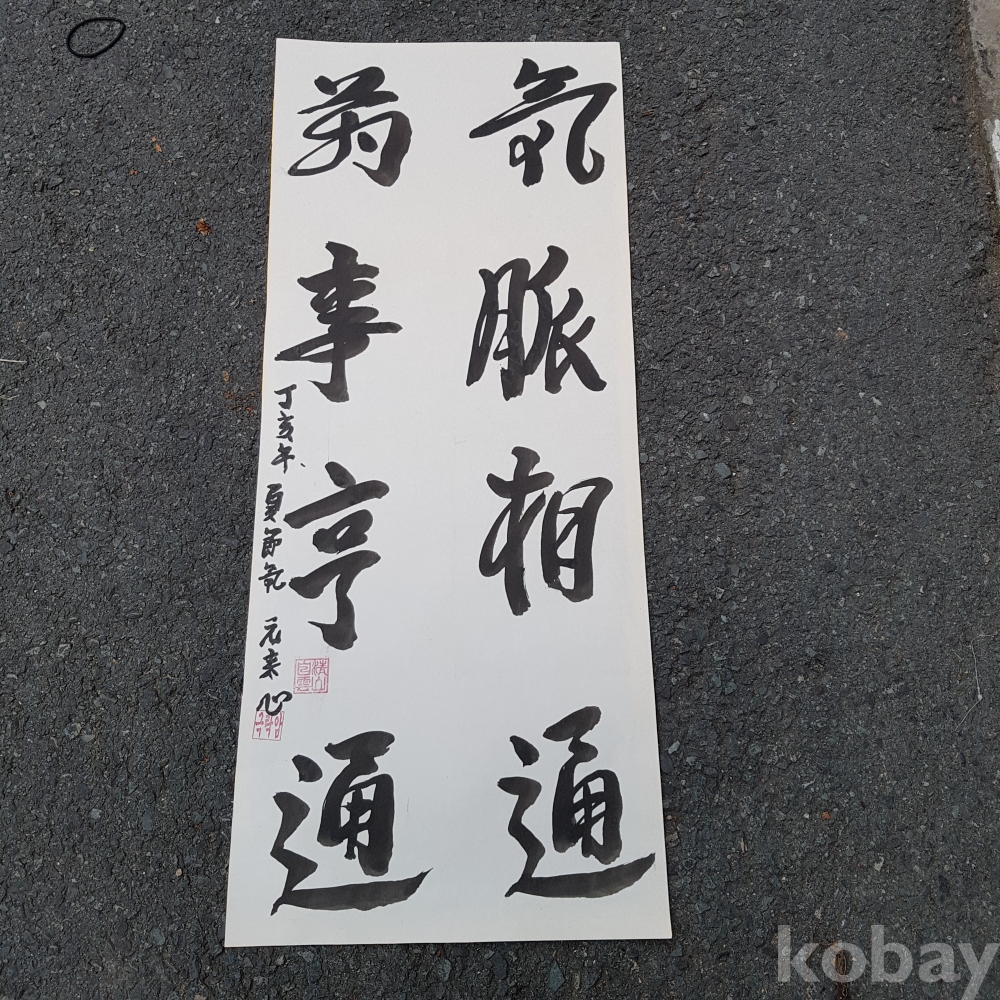 氣脈相通
萬事亨通
丁亥年 夏節氣 元 心
白雲
kobay